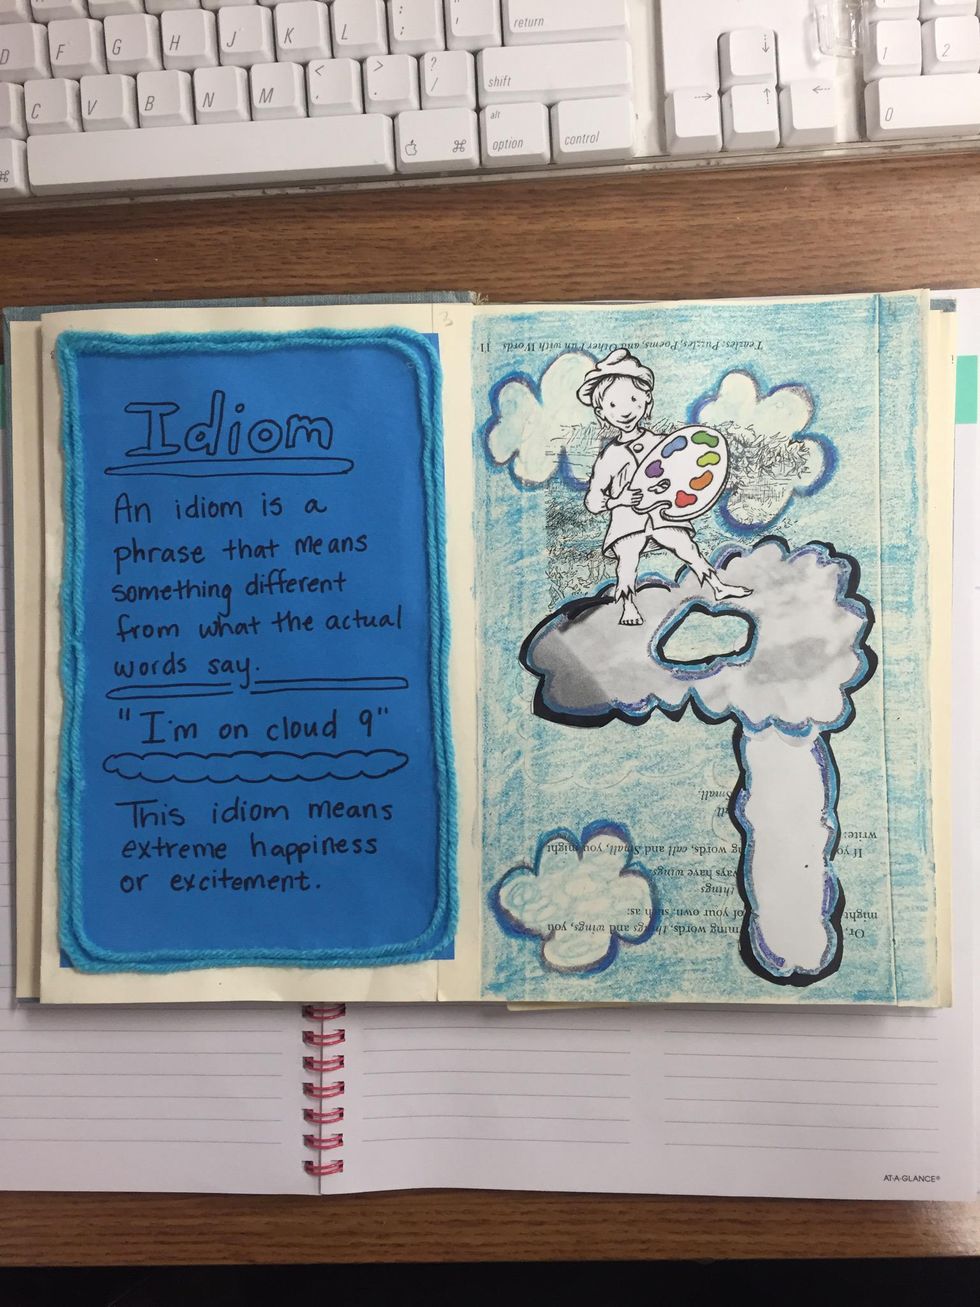 return
D F G H J K L : ;
shift
C V B N M < , > . ? /
1 2
alt
option
control
0
Idiom
An idiom is a
phrase that means
something different
from what the actual
words say.
"I'm on cloud 9"
This idiom means
extreme happiness
or excitement.
11 Teazles: Puzzles, Poems, and Other Fun with Words
Or,
ming words, things and wings, you
might
of your own, such as:
things
ways have wings
If yo
ng words, call and Small, you might
write:
Small.
AT-A-GLANCE®